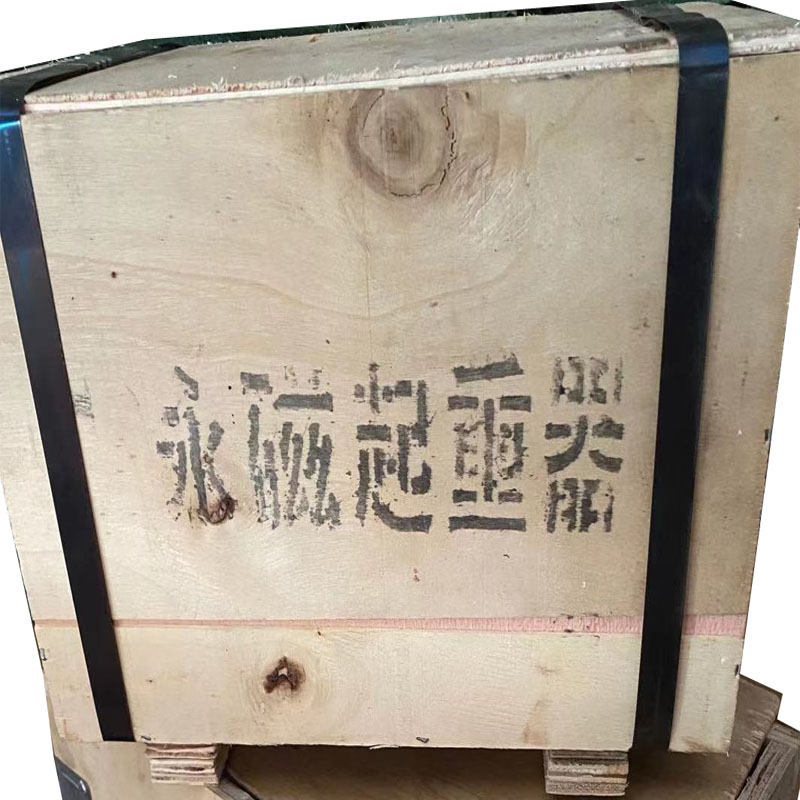 永磁起重器